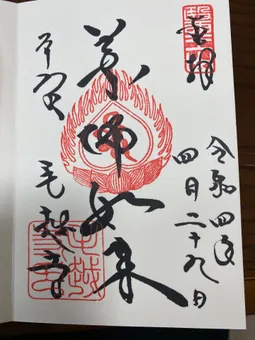 奉拝
令和四年
四月二十九日
薬師如来
平泉
毛越寺